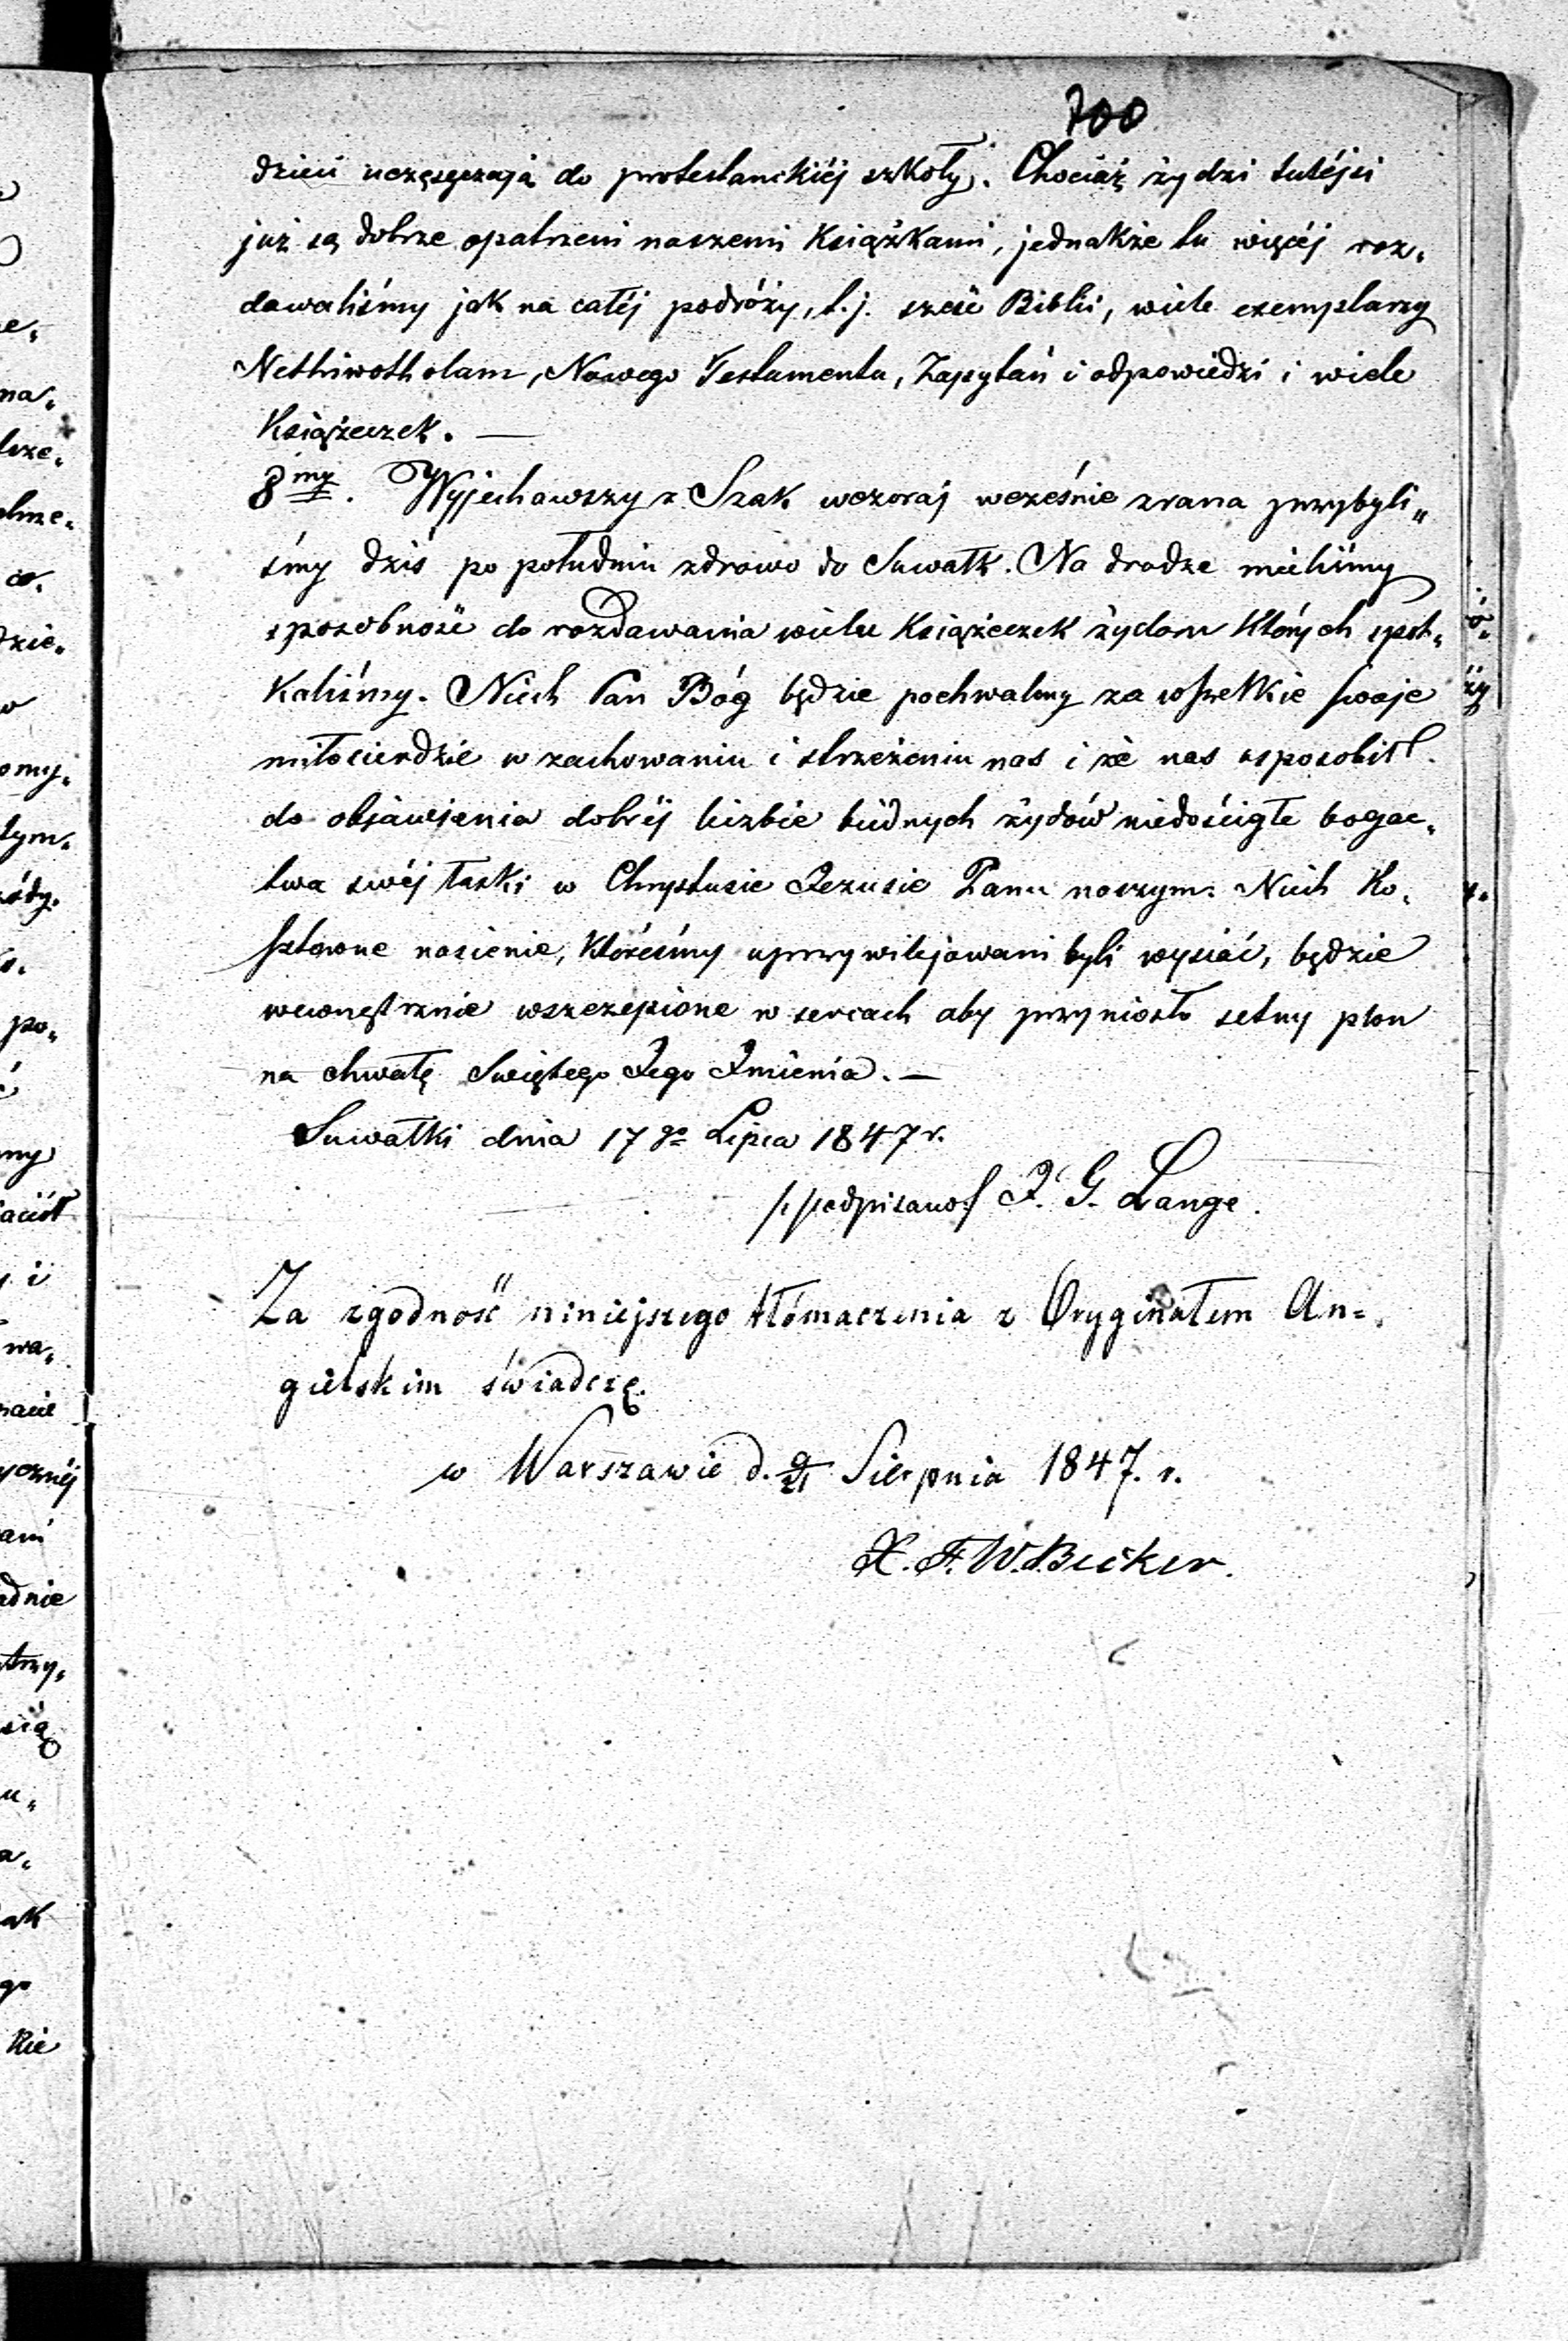 700
dzieci uczęszczają do protestanckiéj szkoły. Chociaż żydzi tutéjsi
już są dobrze opatrzeni naszemi Książkami, jednakże tu więcéj roz-
dawaliśmy jak na całéj podróży, t.j. sześć Biblii, wiele exemplarzy
Nethiwoth olam, Nowego Testamentu, Zapytań i odpowiedzi i wiele
Książeczek. —
8my. Wyjechawszy z Szak wczoraj wcześnie zrana przybyli-
śmy dziś po południu zdrowo do Suwałk. Na drodze mieliśmy
sposobność do rozdawania wielu Książeczek żydom Których spot-
kaliśmy. Niech Pan Bóg będzie pochwalony za wszelkie swoje
miłosierdzie w zachowaniu i strzeżeniu nas i że nas usposobił
do objawienia dobréj liczbie biédnych żydów niedościgłe bogac-
twa swéj łaski w Chrystusie Jezusie Panu naszym. Niech Ko-
sztowne nasienie, Któreśmy uprzywilejowani byli wysiać, będzie
wewnętrznie wszczepione w sercach aby przyniosło setny plon
na chwałę Swiętego Jego Imienia. —
Suwałki dnia 17go Lipca 1847 r.
/:podpisano:/ J. G. Lange.
Za zgodność niniejszego tłómaczenia z Oryginałem An-
gielskim świadczę.
w Warszawie d. 9/21 Sierpnia 1847. r.
X. F. W. Becker.